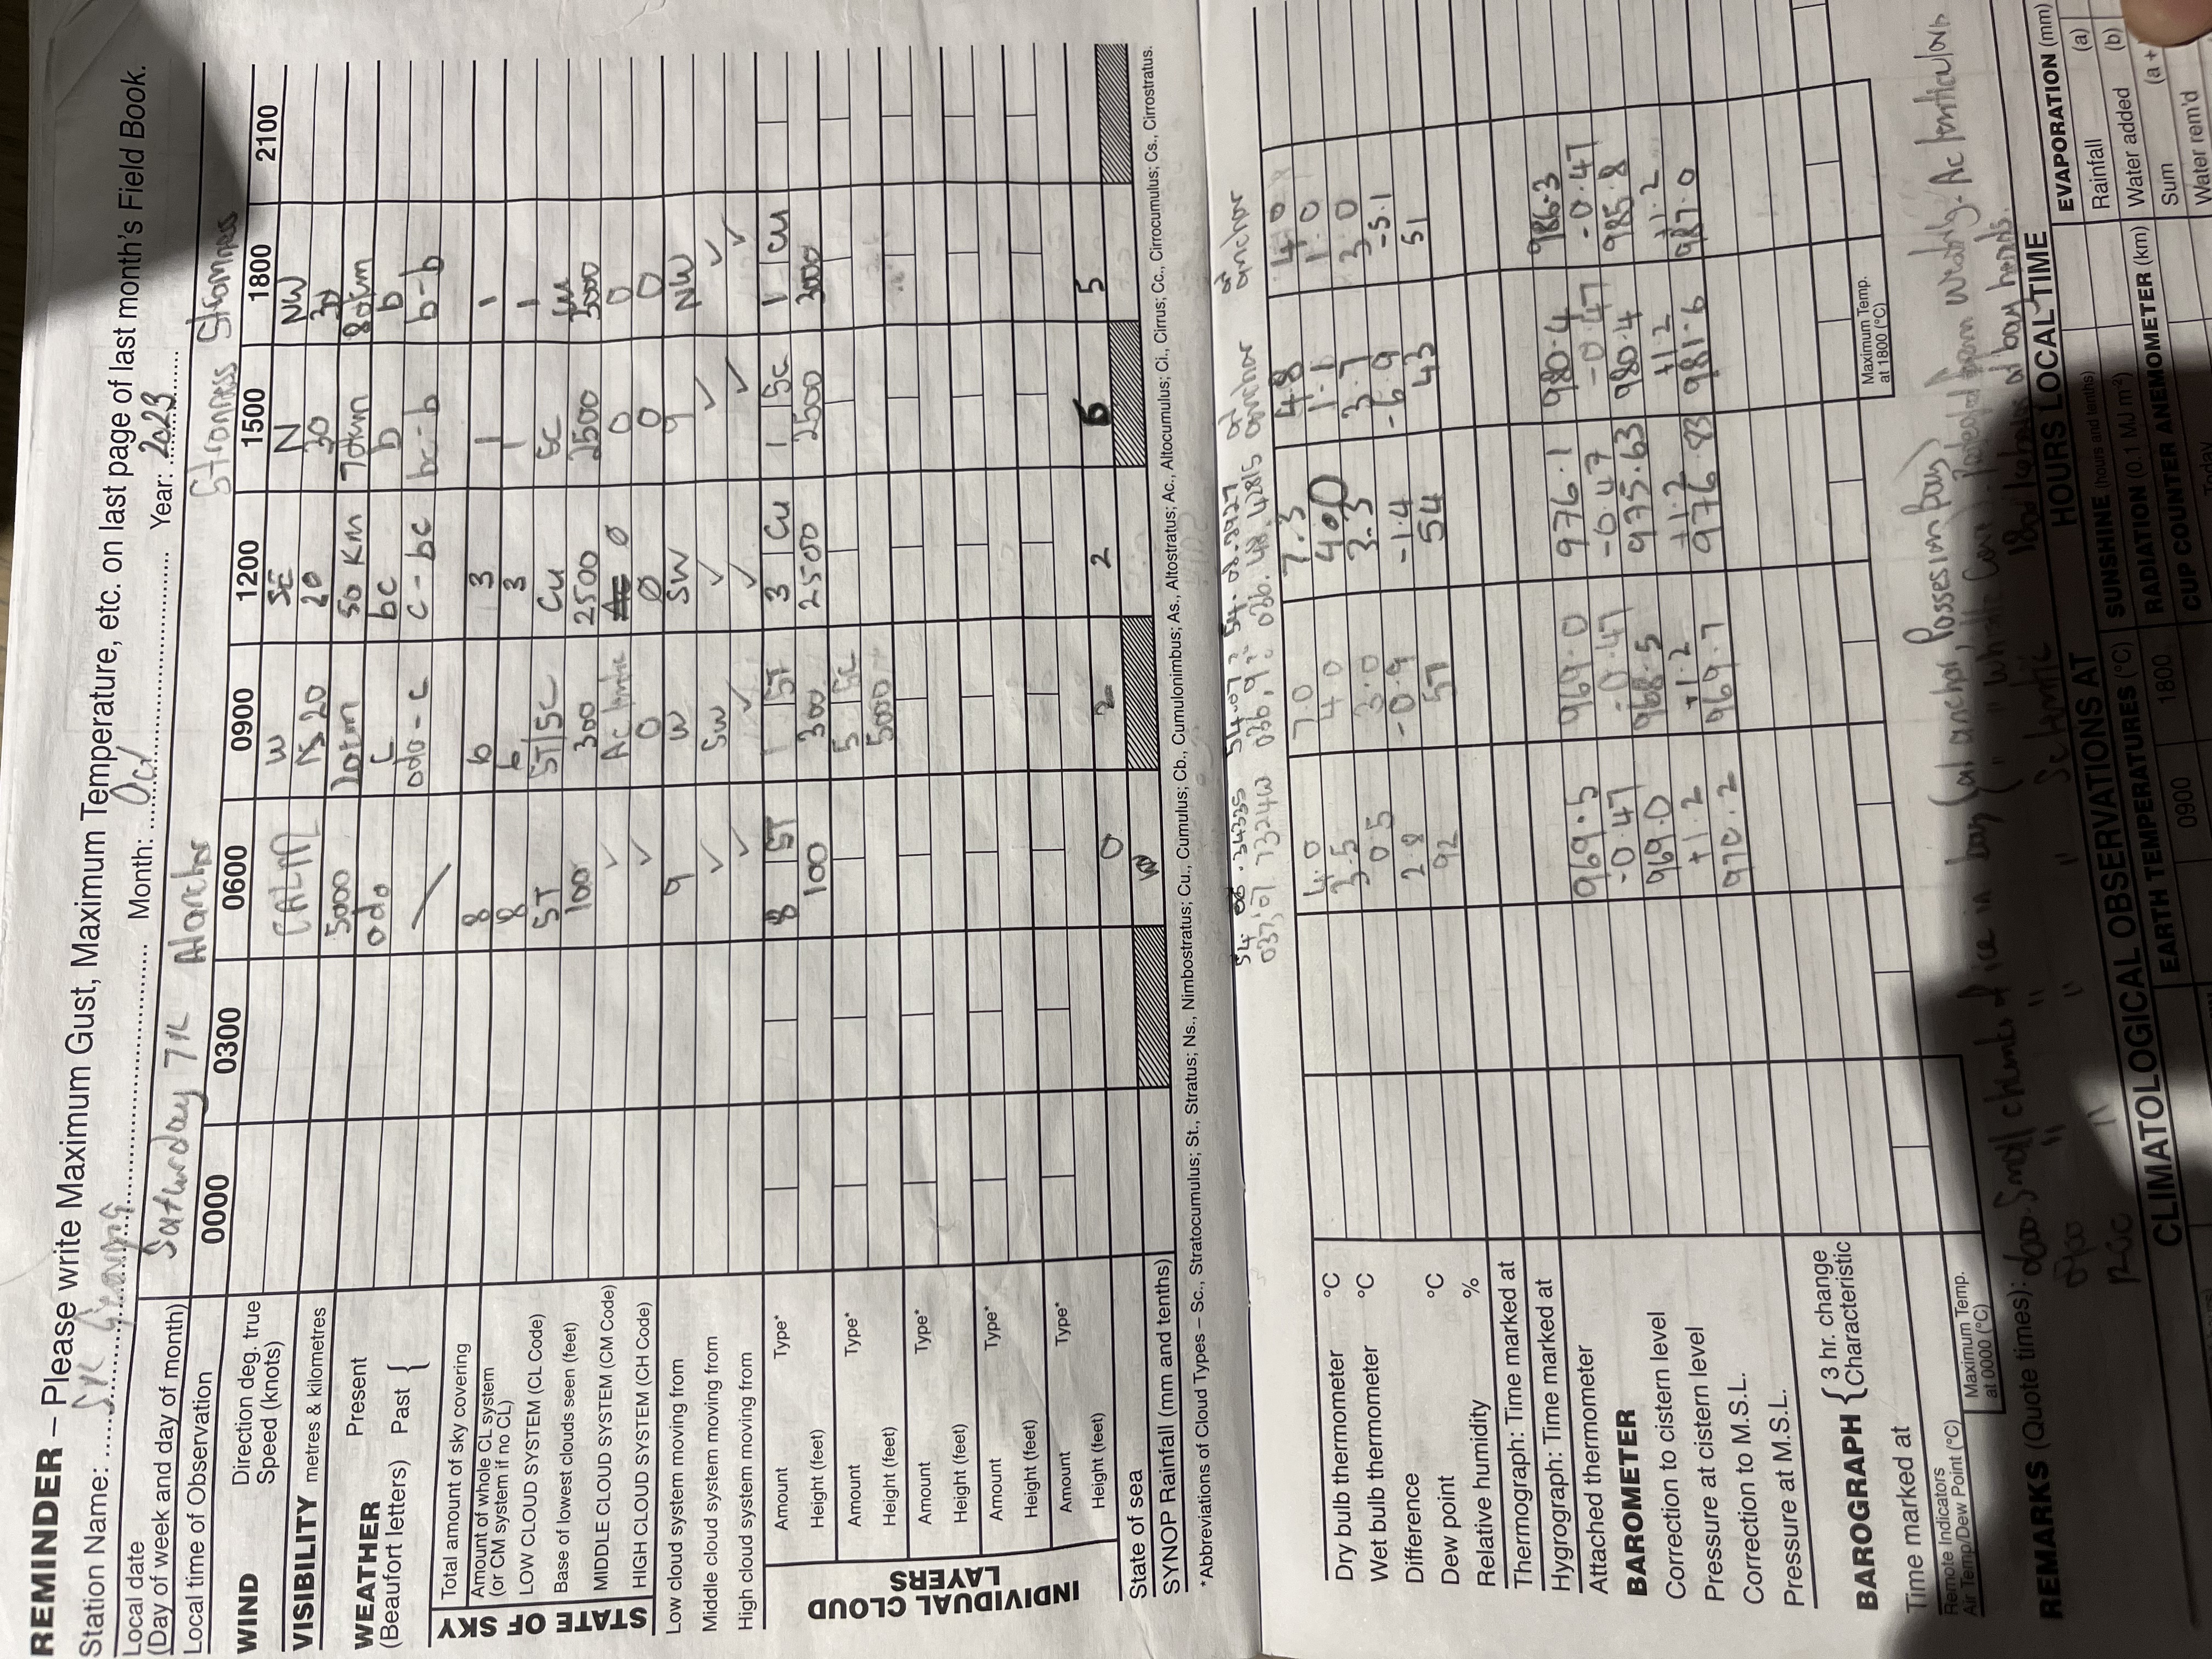 REMINDER – Please write Maximum Gust, Maximum Temperature, etc. on last page of last month's Field Book.
Station Name: Sth Georgia Month: Oct Year: 2023
Local date
(Day of week and day of month) Saturday 7th At anchor Stromness Stromness
Local time of Observation 0000 0300 0600 0900 1200 1500 1800 2100
WIND Direction deg. true CALM W SE N NW
Speed (knots) 20 20 30 30
VISIBILITY metres & kilometres 5000 20km 50 KM 70km 80km
WEATHER Present odo c bc b b
(Beaufort letters) Past { odo - c c - bc bc - b b - b
STATE OF SKY
Total amount of sky covering 8 6 3 1 1
Amount of whole CL system
(or CM system if no CL) 8 6 3 1 1
LOW CLOUD SYSTEM (CL Code) ST ST/SC Cu SC Cu
Base of lowest clouds seen (feet) 100 300 2500 2500 3000
MIDDLE CLOUD SYSTEM (CM Code) ✓ Ac Ac 0 0 0
HIGH CLOUD SYSTEM (CH Code) ✓ 0 0 0 0
Low cloud system moving from 9 W SW 9 NW
Middle cloud system moving from ✓ SW ✓ ✓ ✓
High cloud system moving from ✓ ✓ ✓ ✓ ✓
INDIVIDUAL CLOUD LAYERS
Amount Type* 8 ST 1 ST 3 Cu 1 Sc 1 Cu
Height (feet) 100 300 2500 2500 3000
Amount Type* 5 Sc
Height (feet) 5000
Amount Type*
Height (feet)
Amount Type*
Height (feet)
Amount Type*
Height (feet)
State of sea 0 2 2 5 5
SYNOP Rainfall (mm and tenths)
*Abbreviations of Cloud Types – Sc., Stratocumulus; St., Stratus; Ns., Nimbostratus; Cu., Cumulus; Cb., Cumulonimbus; As., Altostratus; Ac., Altocumulus; Ci., Cirrus; Cc., Cirrocumulus; Cs., Cirrostratus.
54. 06 .34335 54.07 ? 54. 08.8927 at anchor at anchor
037,07 7324W 036,9? 036. 48.42815
Dry bulb thermometer °C 4.0 7.0 7.3 4.8 4.0
Wet bulb thermometer °C 3.5 4.0 4.0 1.1 1.0
Difference 0.5 3.0 3.3 3.7 3.0
Dew point °C 2.8 -0.9 -1.4 -6.9 -5.1
Relative humidity % 92 57 54 43 51
Thermograph: Time marked at
Hygrograph: Time marked at
Attached thermometer
BAROMETER 969.5 969.0 976.1 980.4 986.3
Correction to cistern level -0.47 -0.47 -0.47 -0.47 -0.47
Pressure at cistern level 969.0 968.5 975.63 980.4 985.8
Correction to M.S.L. +1.2 +1.2 +1.2 +1.2 +1.2
Pressure at M.S.L. 970.2 969.7 976.83 981.6 987.0
BAROGRAPH { 3 hr. change
Characteristic
Time marked at
Remote Indicators
Air Temp/Dew Point (°C)
Maximum Temp.
at 0000 (°C)
Maximum Temp.
at 1800 (°C)
REMARKS (Quote times): 0600. Small chunks of ice in bay (at anchor, Possesion Bay)
0900 " " " " Protected from Westerly. Ac lenticularis
1200 " " " Sc lentic 1800 Icebergs at bay heads.
CLIMATOLOGICAL OBSERVATIONS AT HOURS LOCAL TIME
EARTH TEMPERATURES (°C)
0900 1800
SUNSHINE (hours and tenths)
RADIATION (0.1 MJ m-2)
CUP COUNTER ANEMOMETER (km)
Today
EVAPORATION (mm)
Rainfall (a)
Water added (b)
Sum (a +
Water rem'd